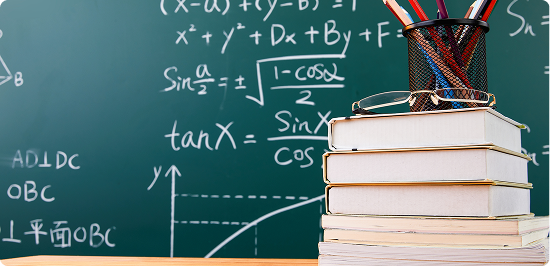 (x-a)+(y-b)=1
x²+y²+Dx+By+F=
Sin a/2 = ± √(1-cosα/2)
Sn
B
tanX = SinX/CosX
AD⊥DC
OBC
⊥平面OBC
y